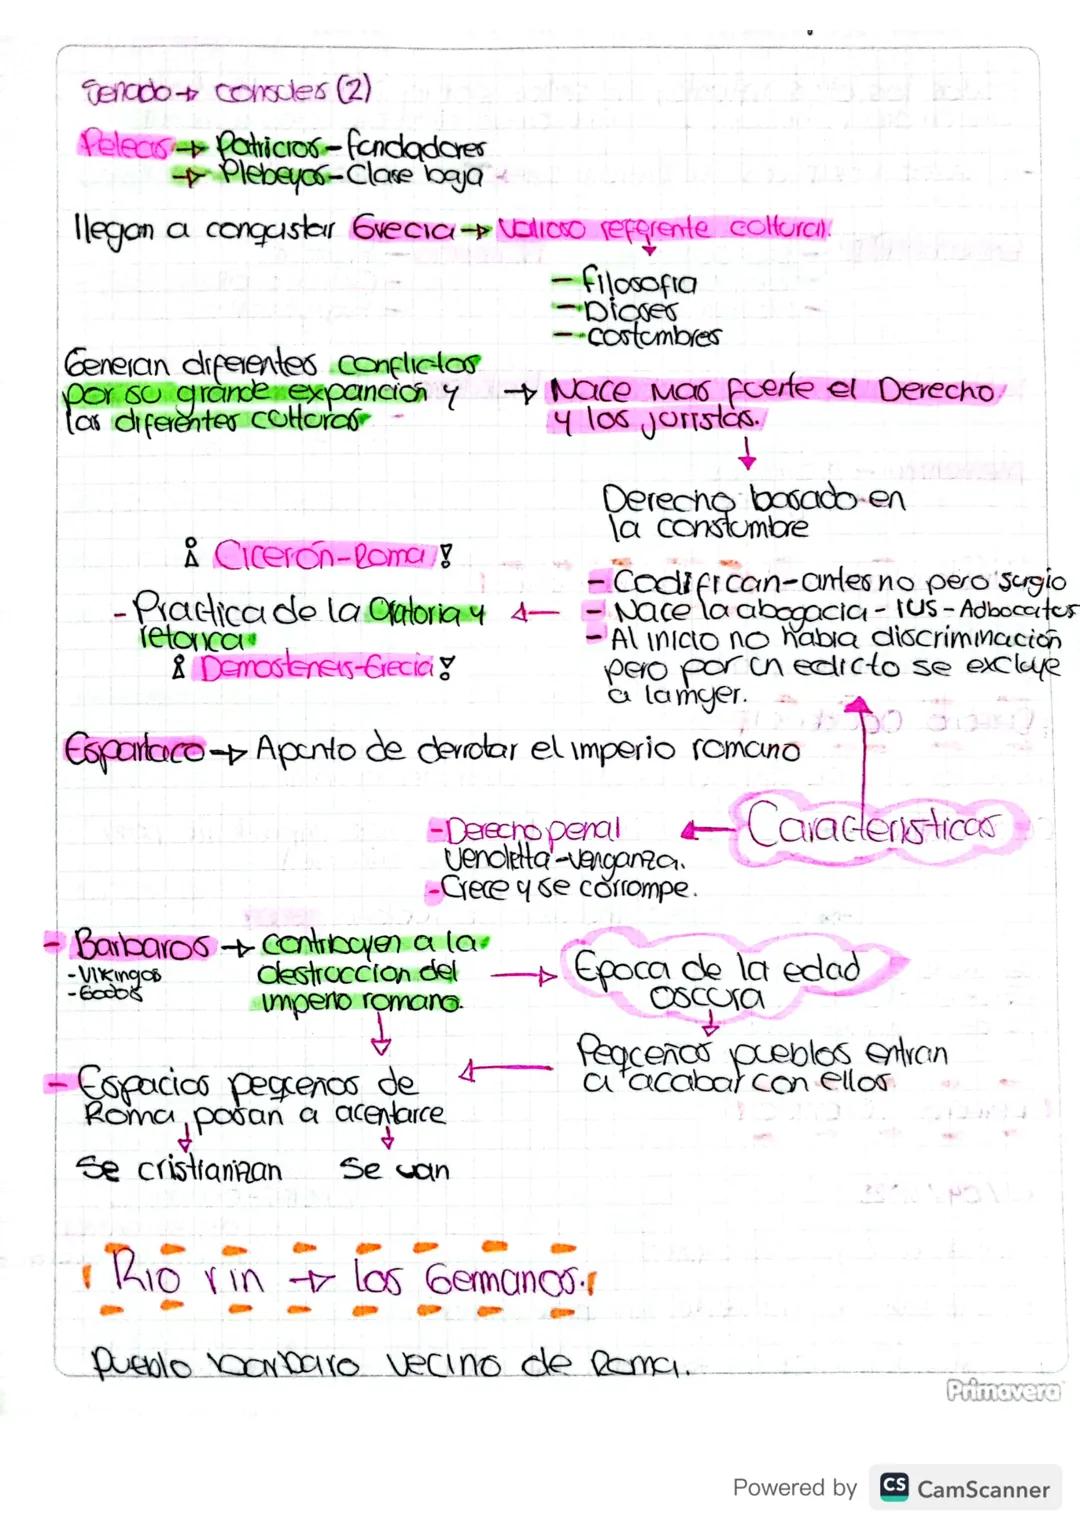 Senado → consules (2)
Peleas → Patricios - fundadores
→ Plebeyos - Clase baja
llegan a conquistar Grecia → Valioso referente cultural.
- filosofia
- Dioses
- costumbres
Generan diferentes conflictos
por su grande expancion y
las diferentes culturas
→ Nace mas fuerte el Derecho
y los juristas.
Derecho basado en
la constumbre
- Codifican - antes no pero surgio
- Nace la abogacia - IUS - Adbocatus
- Al inicio no habia discriminacion
pero por un edicto se excluye
a la mujer.
Cicerón - Roma
- Practica de la Oratoria y
retorica
Demostenes - Grecia
Espartaco → Apunto de derrotar el imperio romano
Caracteristicas
- Derecho penal
vendetta - venganza.
- Crece y se corrompe.
- Barbaros → contribuyen a la
- Vikingos
- Godos
destruccion del
imperio romano.
Epoca de la edad
oscura
Pequeños pueblos entran
a acabar con ellos
- Espacios pequeños de
Roma, pasan a acentarce
Se cristianizan Se van
Rio rin → los Germanos.
Pueblo barbaro vecino de Roma.
Primavera
Powered by CS CamScanner